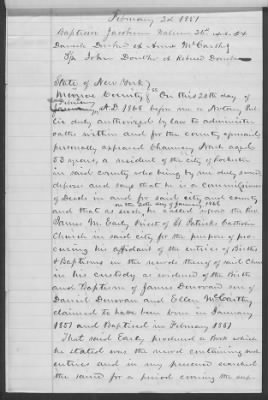 February 2d 1851
Baptisavi Jacobum Natum 26th
Daniele Donovan & Anna McCarthy
Sp John Donoho &
State of New York
Monroe County ss On this 28th day of
A.D. 1865 before me a Notary Pub
lic duly authorized by law to administer
oaths within and for the county aforesaid
personally appeared Chauncey Nash aged
53 years, a resident of the city of Rochester
in said county who being by me duly sworn
deposes and says that he is a commissioner
of Deeds in and for said city and county
on the 20th day of January 1865
and that as such, he called upon the Rev
James M. Early Priest of St Patricks Catholic
Church in said city for the purpose of pro
curing his affidavit of the entries of Births
& Baptisms in the records thereof of said Church
in his custody as evidence of the Birth
and Baptism of James Donovan son of
Daniel Donovan and Ellen McCarthy
claimed to have been born in January
1851 and Baptised in February 1851
That said Early produced a book which
he stated was the record containing such
entries and in my presence searched
the same for a period covering the